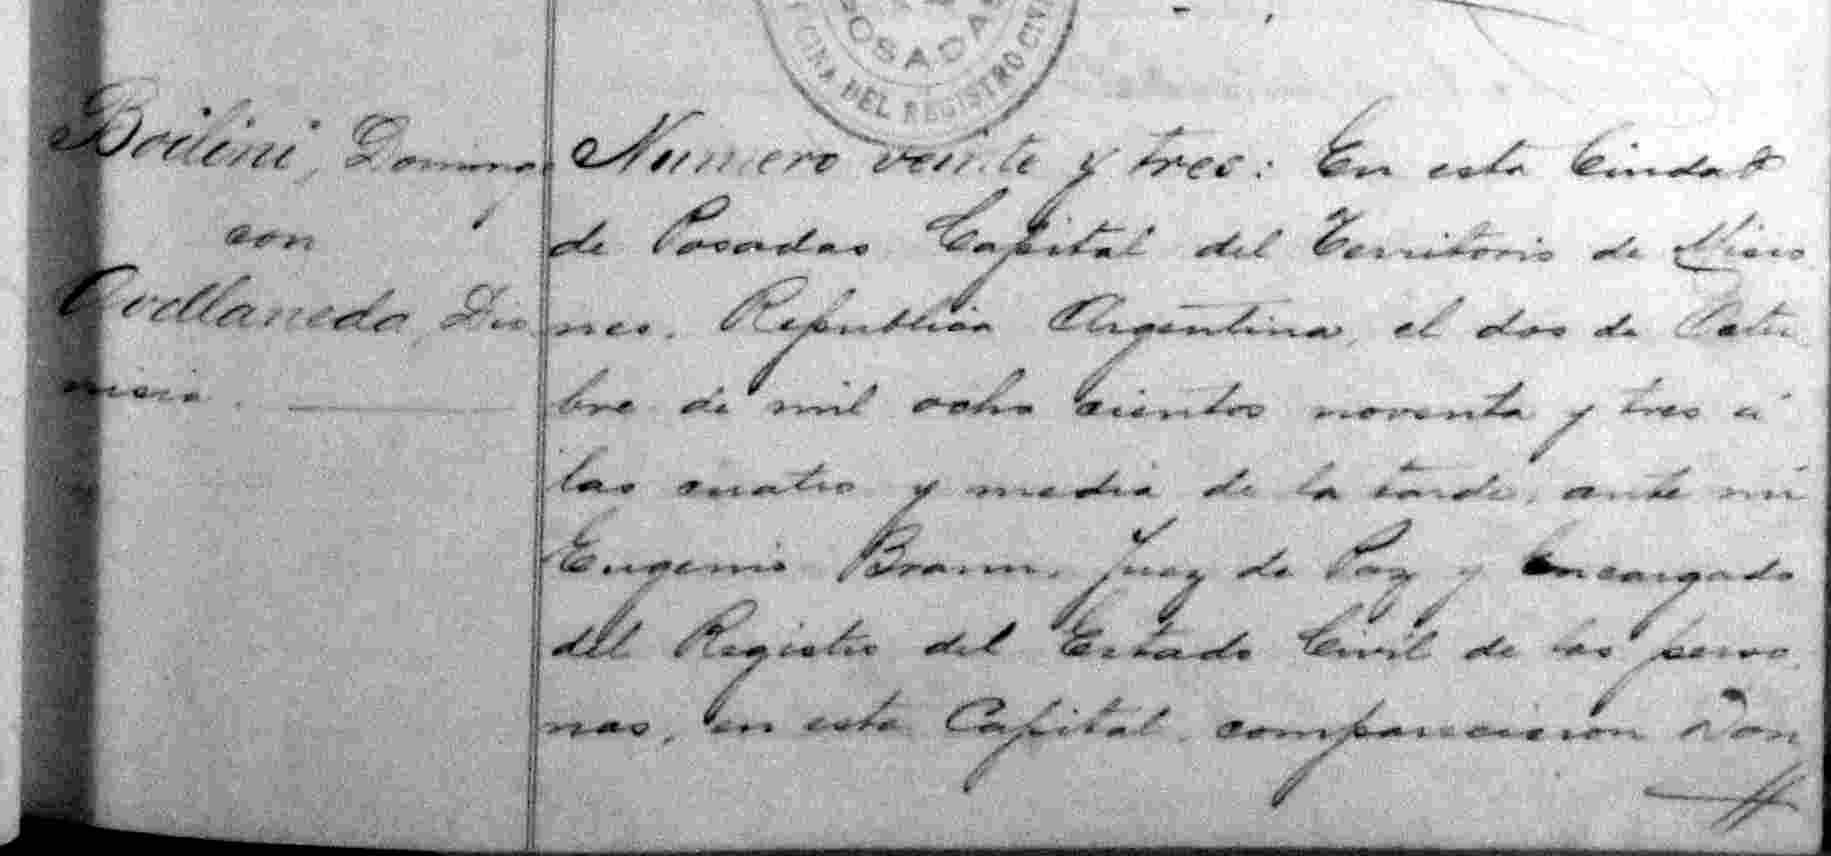 POSADAS
OFICINA DEL REGISTRO CIVIL
Boilini, Domingo
con
Avellaneda, Dio
nisia.
Numero veinte y tres: En esta Ciudad
de Posadas Capital del Territorio de Misio
nes, Republica Argentina, el dos de Octu
bre de mil ocho cientos noventa y tres á
las cuatro y media de la tarde, ante mi
Eugenio Braun, Juez de Paz y Encargado
del Registro del Estado Civil de las perso
nas, en esta Capital, comparecieron Don